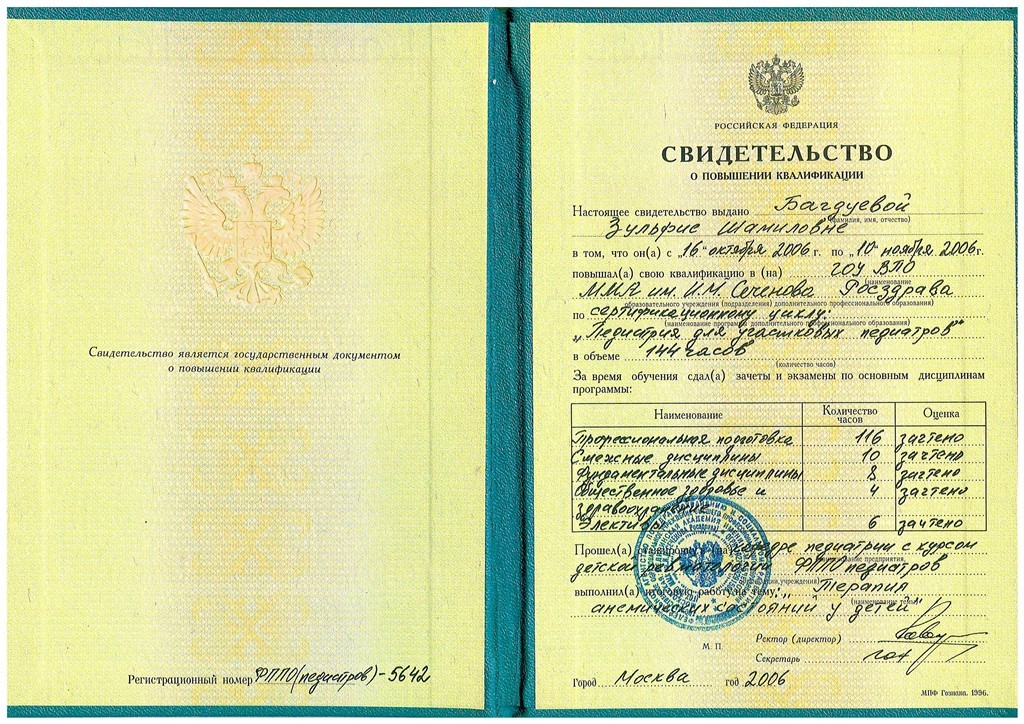 Свидетельство является государственным документом
о повышении квалификации
Регистрационный номер ФППО (педиатров) - 5642
РОССИЙСКАЯ ФЕДЕРАЦИЯ
СВИДЕТЕЛЬСТВО
О ПОВЫШЕНИИ КВАЛИФИКАЦИИ
Настоящее свидетельство выдано Багдуевой
(фамилия, имя, отчество)
Зульфие Шамиловне
в том, что он(а) с „16" октября 2006 г. по „10" ноября 2006 г.
повышал(а) свою квалификацию в (на) ГОУ ВПО
(наименование
ММА им. И.М. Сеченова Росздрава
образовательного учреждения (подразделения) дополнительного профессионального образования)
по сертификационному циклу:
(наименование программы дополнительного профессионального образования)
„Педиатрия для участковых педиатров"
в объеме 144 часов
(количество часов)
За время обучения сдал(а) зачеты и экзамены по основным дисциплинам
программы:
Наименование Количество часов Оценка
Профессиональная подготовка 116 зачтено
Смежные дисциплины 10 зачтено
Фундаментальные дисциплины 8 зачтено
Общественное здоровье и 4 зачтено
здравоохранение
Электив 6 зачтено
Прошел(а) стажировку в (на) кафедре педиатрии с курсом
(наименование предприятия,
детской ревматологии ФППО педиатров
организации, учреждения)
выполнил(а) итоговую работу на тему: „Терапия
(наименование темы)
анемических состояний у детей"
Ректор (директор)
М. П.
Секретарь
Город Москва год 2006
МПФ Гознака. 1996.